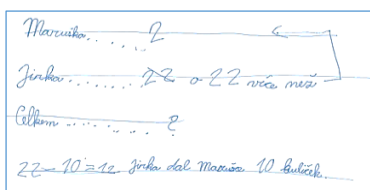 Maruška...... ?
Jirka........ 22 o 22 více než
Celkem............ ?
22-10=12 Jirka dal Marušce 10 kuliček.